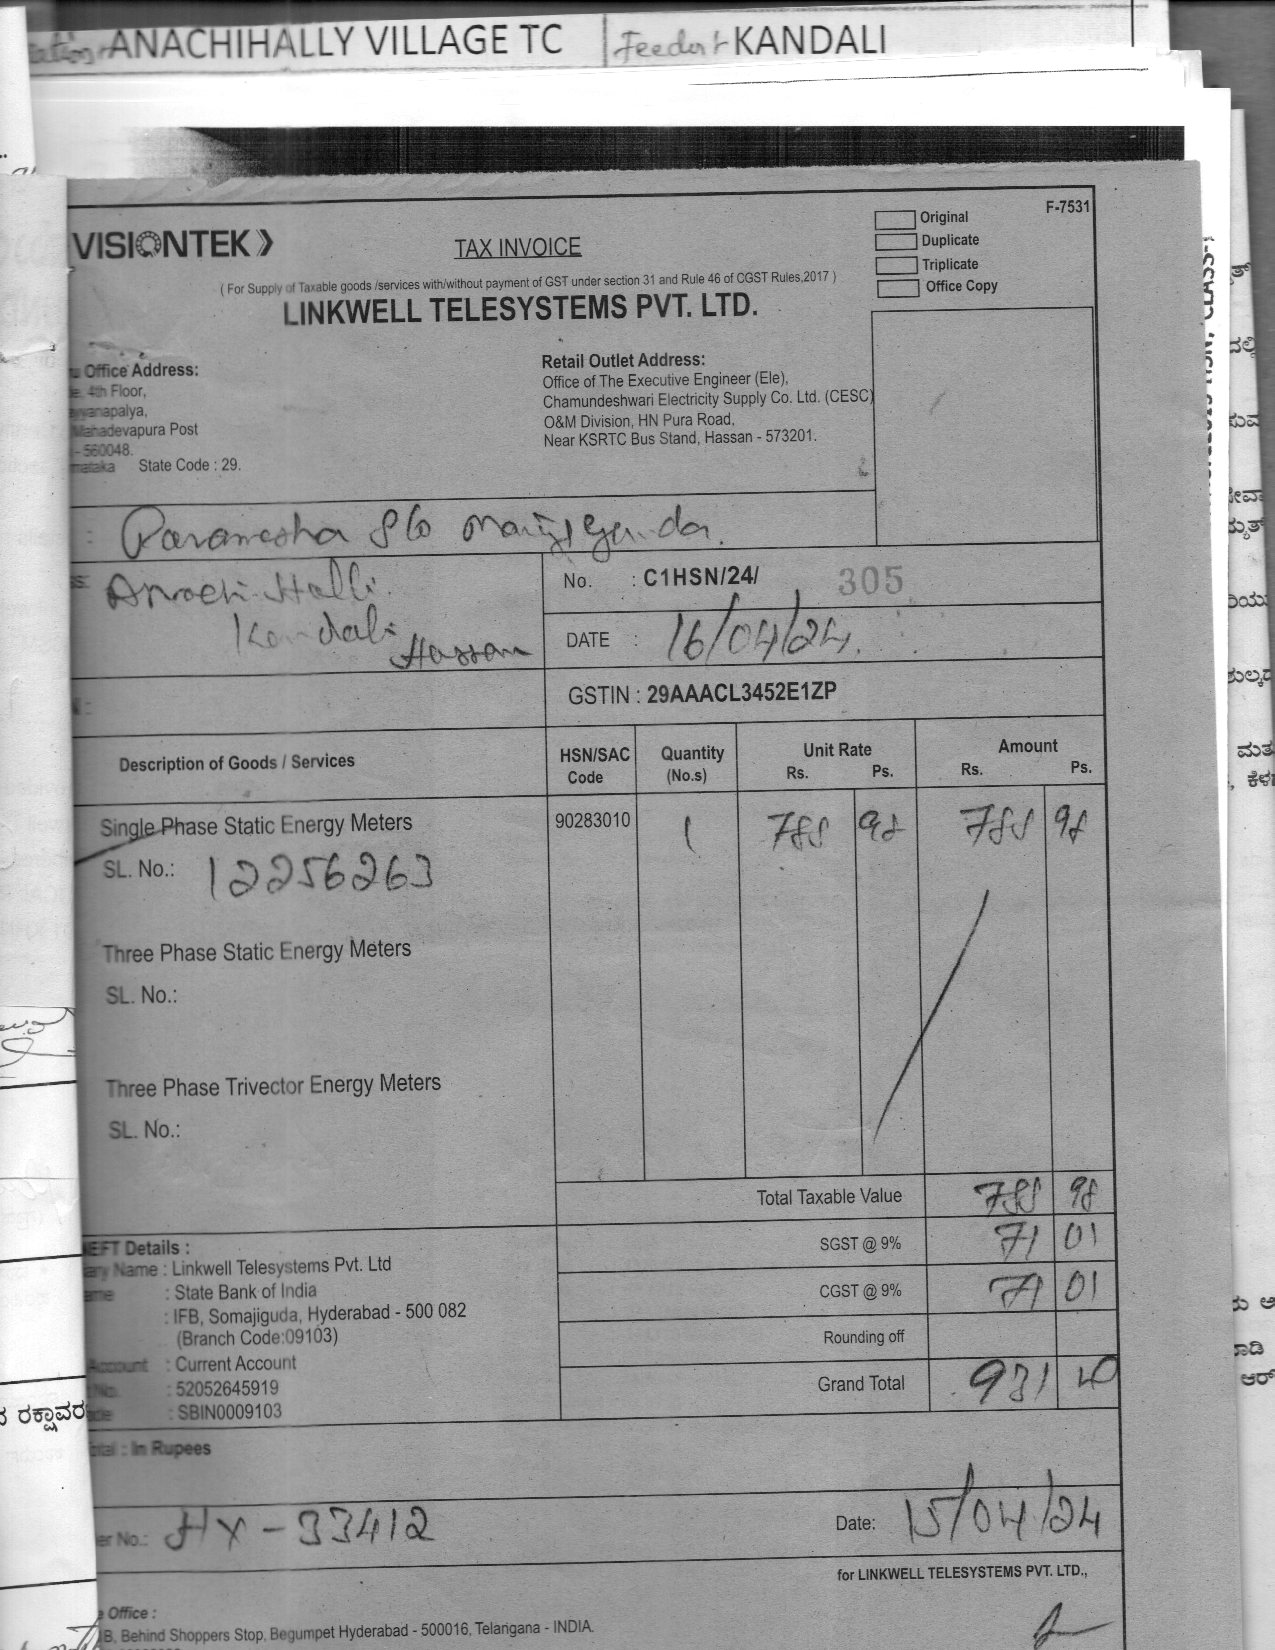 ANACHIHALLY VILLAGE TC Feeder KANDALI
VISIONTEK
TAX INVOICE
F-7531
Original
Duplicate
Triplicate
Office Copy
( For Supply of Taxable goods /services with/without payment of GST under section 31 and Rule 46 of CGST Rules,2017 )
LINKWELL TELESYSTEMS PVT. LTD.
Office Address:
4th Floor,
Mahadevapura Post
- 560048.
State Code : 29.
Retail Outlet Address:
Office of The Executive Engineer (Ele),
Chamundeshwari Electricity Supply Co. Ltd. (CESC)
O&M Division, HN Pura Road,
Near KSRTC Bus Stand, Hassan - 573201.
: Paramesha S/o
Halli
Kandali
Hassan
No. : C1HSN/24/ 305
DATE : 16/04/24.
GSTIN : 29AAACL3452E1ZP
Description of Goods / Services HSN/SAC Code Quantity (No.s) Unit Rate Rs. Ps. Amount Rs. Ps.
Single Phase Static Energy Meters 90283010 1 788 98 788 98
SL. No.: 12256263
Three Phase Static Energy Meters
SL. No.:
Three Phase Trivector Energy Meters
SL. No.:
Total Taxable Value 788 98
SGST @ 9% 71 01
CGST @ 9% 71 01
Rounding off
Grand Total 931
NEFT Details :
Name : Linkwell Telesystems Pvt. Ltd
: State Bank of India
: IFB, Somajiguda, Hyderabad - 500 082
(Branch Code:09103)
Account : Current Account
: 52052645919
: SBIN0009103
: In Rupees
No.: HX-33412
Date: 15/04/24
for LINKWELL TELESYSTEMS PVT. LTD.,
Office :
B, Behind Shoppers Stop, Begumpet Hyderabad - 500016, Telangana - INDIA.